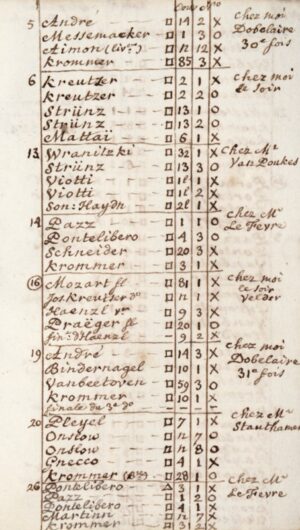 Oev. No
5 André 14 2 X Chez moi
Messemaeker 1 3 0 Dobelaire
Aimon (liv:) n 12 X 30e fois
Krommer 85 3 X
6 Kreutzer 2 1 X Chez moi
Kreutzer 2 2 0 le soir
Strünz 13 1 0
Strünz 13 2 0
Mattaï 6 1 X
13 Wranitzki 32 1 X Chez Mr
Strünz 13 3 0 Van Doukes
Viotti 1 1 X
Viotti 1 2 X
Son: Haydn 2 1 X
14 Pazz 1 1 0 Chez Mr
Pontelibero 4 3 0 Le Fevre
Schneider 20 3 X
Krommer 3 1 X
16 Mozart fl 81 1 X Chez moi
Jos Kreutzer do n 1 X le soir
Haenzl vn 9 3 X Velder
Praëger fl 20 1 0
fin: d'Haenzl 9 2 X
19 André 14 3 X Chez moi
Bindernagel 10 1 X Dobelaire
Vanbeetoven 59 3 0 31e fois
Krommer 10 1 X
finale du 3e do
20 Pleyel 7 1 X Chez Mr
Onslow n 7 0 Stauthamer
Onslow n 8 0
Gnecco 4 1 X
Krommer 28 1 0
26 Pontelibero 3 1 X Chez Mr
Pazz 1 2 0 Le Fevre
Pontelibero 4 1 X
Martinn n 7 X
Krommer 3 2 X